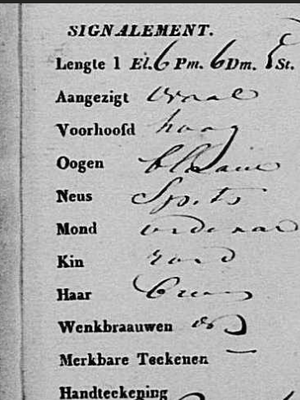 SIGNALEMENT.
Lengte 1 El. 6 Pm. 6 Dm. St.
Aangezigt ovaal
Voorhoofd hoog
Oogen blaauw
Neus Spits
Mond ordinair
Kin rond
Haar bruin
Wenkbraauwen id
Merkbare Teekenen —
Handteekening